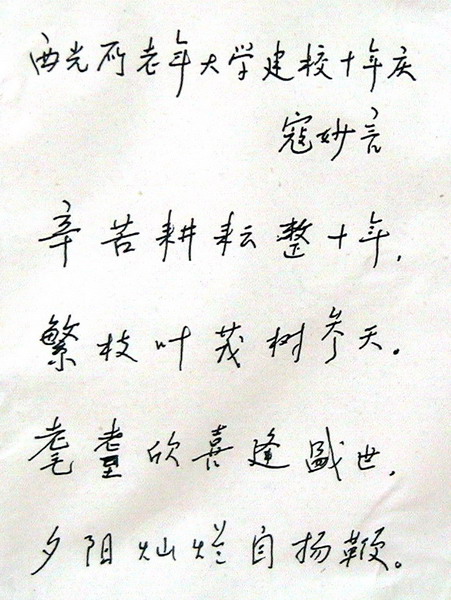 西光所老年大学建校十年庆
寇妙言
辛苦耕耘整十年，
繁枝叶茂树参天。
耄耋欣喜逢盛世，
夕阳灿烂自扬鞭。